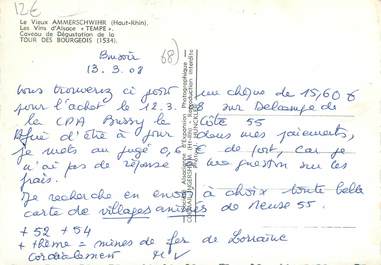 12€
Le Vieux AMMERSCHWIHR (Haut-Rhin).
Les Vins d'Alsace « TEMPE ».
Caveau de Dégustation de la
TOUR DES BOURGEOIS (1534).
68)
13.3.08
Vous trouverez ci joint un chèque de 15,60 €
pour l'achat le 12.3.08 sur Delcampe de
la CPA Bussy la Côte 55
afin d'être à jour dans mes paiements,
je mets au jugé 0,6 € de port, car je
n'ai pas de réponse à ma question sur les
frais.
Je recherche en envoi à choix toute belle
carte de villages animés de Meuse 55.
+ 52 + 54
+ thème = mines de fer de Lorraine
Cordialement